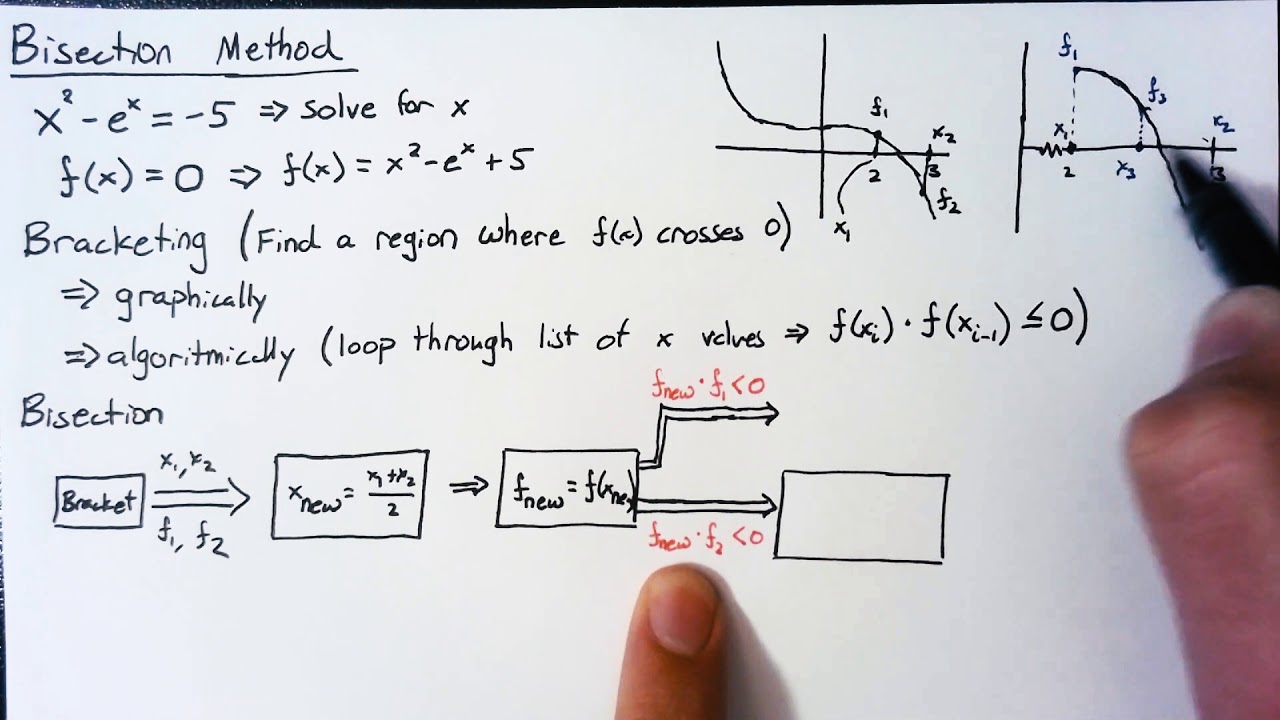 Bisection Method
x² - eˣ = -5 ⇒ solve for x
f(x) = 0 ⇒ f(x) = x² - eˣ + 5
Bracketing (Find a region where f(x) crosses 0)
⇒ graphically
⇒ algoritmically (loop through list of x values ⇒ f(xᵢ) · f(xᵢ₋₁) ≤ 0)
Bisection
Bracket
x₁, x₂
f₁, f₂
x_new = (x₁ + x₂)/2
⇒
f_new = f(x_new
f_new · f₁ < 0
f_new · f₂ < 0
f₁
x₂
2
3
x₁
f₂
f₁
f₃
x₁
x₂
2
x₃
3